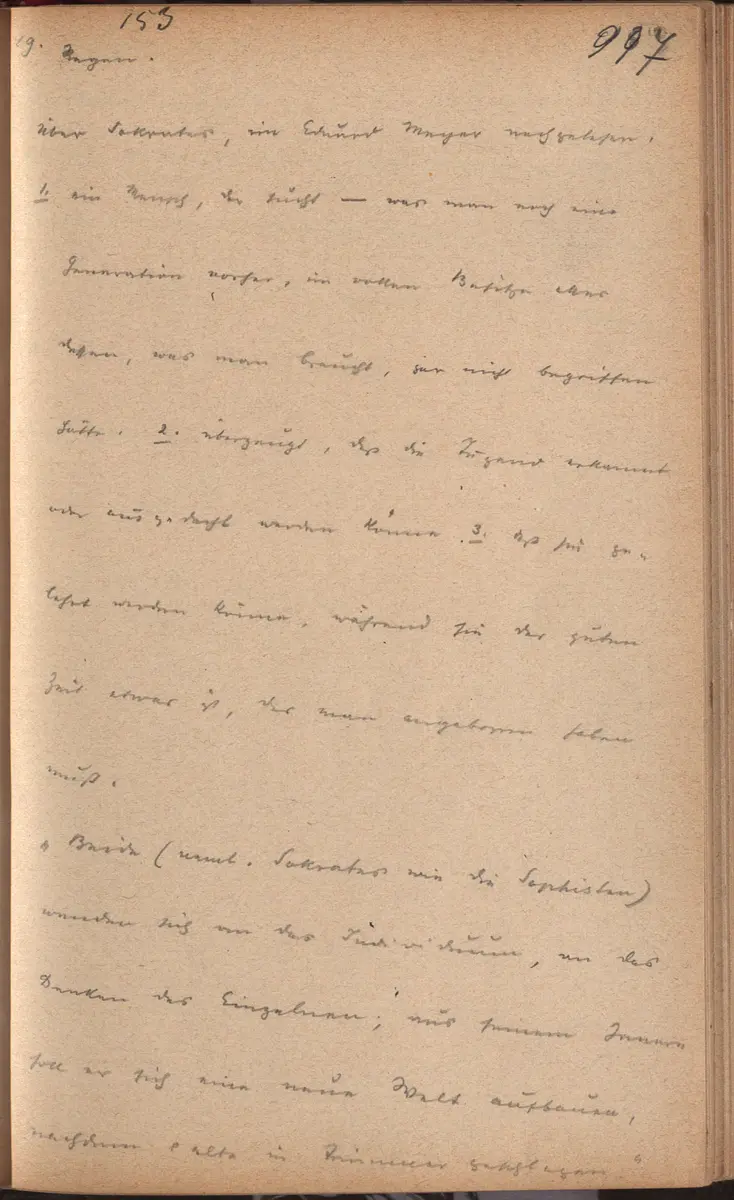 153
917
19. Regen.
über Sokrates, im Eduard Meyer nachgelesen.
1. ein Mensch, der sucht — was man noch eine
Generation vorher, im vollen Besitze alles
dessen, was man braucht, gar nicht begriffen
hätte. 2. überzeugt, daß die Tugend erkannt
oder ausgedacht werden könne. 3. daß sie ge-
lehrt werden könne, während sie der guten
Zeit etwas ist, das man angeboren haben
muß.
"Beide (näml. Sokrates wie die Sophisten)
wenden sich an das Individuum, an das
Denken des Einzelnen; aus seinem Innern
soll er sich eine neue Welt aufbauen,
nachdem alte in Trümmer geschlagen."